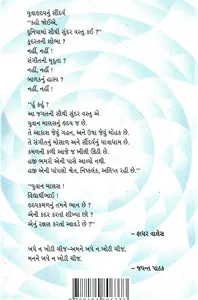 યુવાહૃદયનું સૌંદર્ય
“કહો જોઈએ,
દુનિયામાં સૌથી સુંદર વસ્તુ કઈ ?”
કુદરતની શોભા ?
નહીં, નહીં !
સંગીતની મધુરતા ?
નહીં, નહીં !
બાળકનું હાસ્ય ?
નહીં, નહીં !
“હું કહું ?
આ જગતની સૌથી સુંદર વસ્તુ એ
યુવાન માણસનું હૃદય જ છે.
તે આકાશ જેવું ગહન, અને ઉષા જેવું મોહક છે.
તે સંગીતનું મોસાળ અને સૌંદર્યનું યાત્રાધામ છે.
કમળની કળી આજે જ ખીલી ઊઠી છે.
હજી ભમરો એની પાસે આવ્યો નથી.
હજી એની પાંખડી શ્વેત, નિષ્કલંક, અલિપ્ત રહી છે.”
“યુવાન માણસ !
વિદ્યાર્થીભાઈ !
હૃદયકમળનું તમને ભાન છે ?
એની કદર કરતાં શીખ્યા છો ?
એનું રક્ષણ કરતાં આવડે છે ?”
– ફાધર વાલેસ
ખપે ન ખોટી ચીજ–અમને ખપે ન ખોટી ચીજ,
મનને ખપે ન ખોટી ચીજ.
– જયન્ત પાઠક